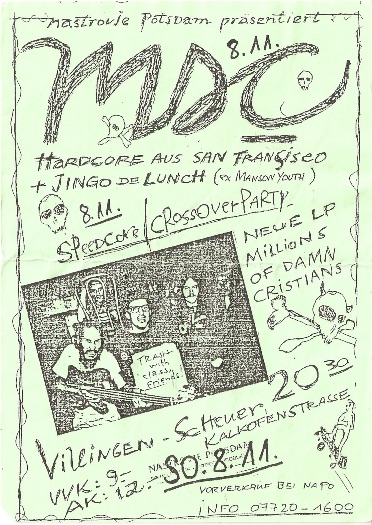 Mastrovje Potsdam präsentiert:
8.11.
MDC
HARDCORE AUS SAN FRANCISCO
+ JINGO DE LUNCH (EX MANSON YOUTH)
8.11.
SPEEDCORE / CROSSOVERPARTY
NEUE LP
MILLIONS
OF DAMN
CRISTIANS
20 30
VILLINGEN - SCHEUER
KALKOFENSTRASSE
VVK: 9.-
AK: 12.-
SO. 8.11.
VORVERKAUF BEI NAPO
INFO 07720-1600